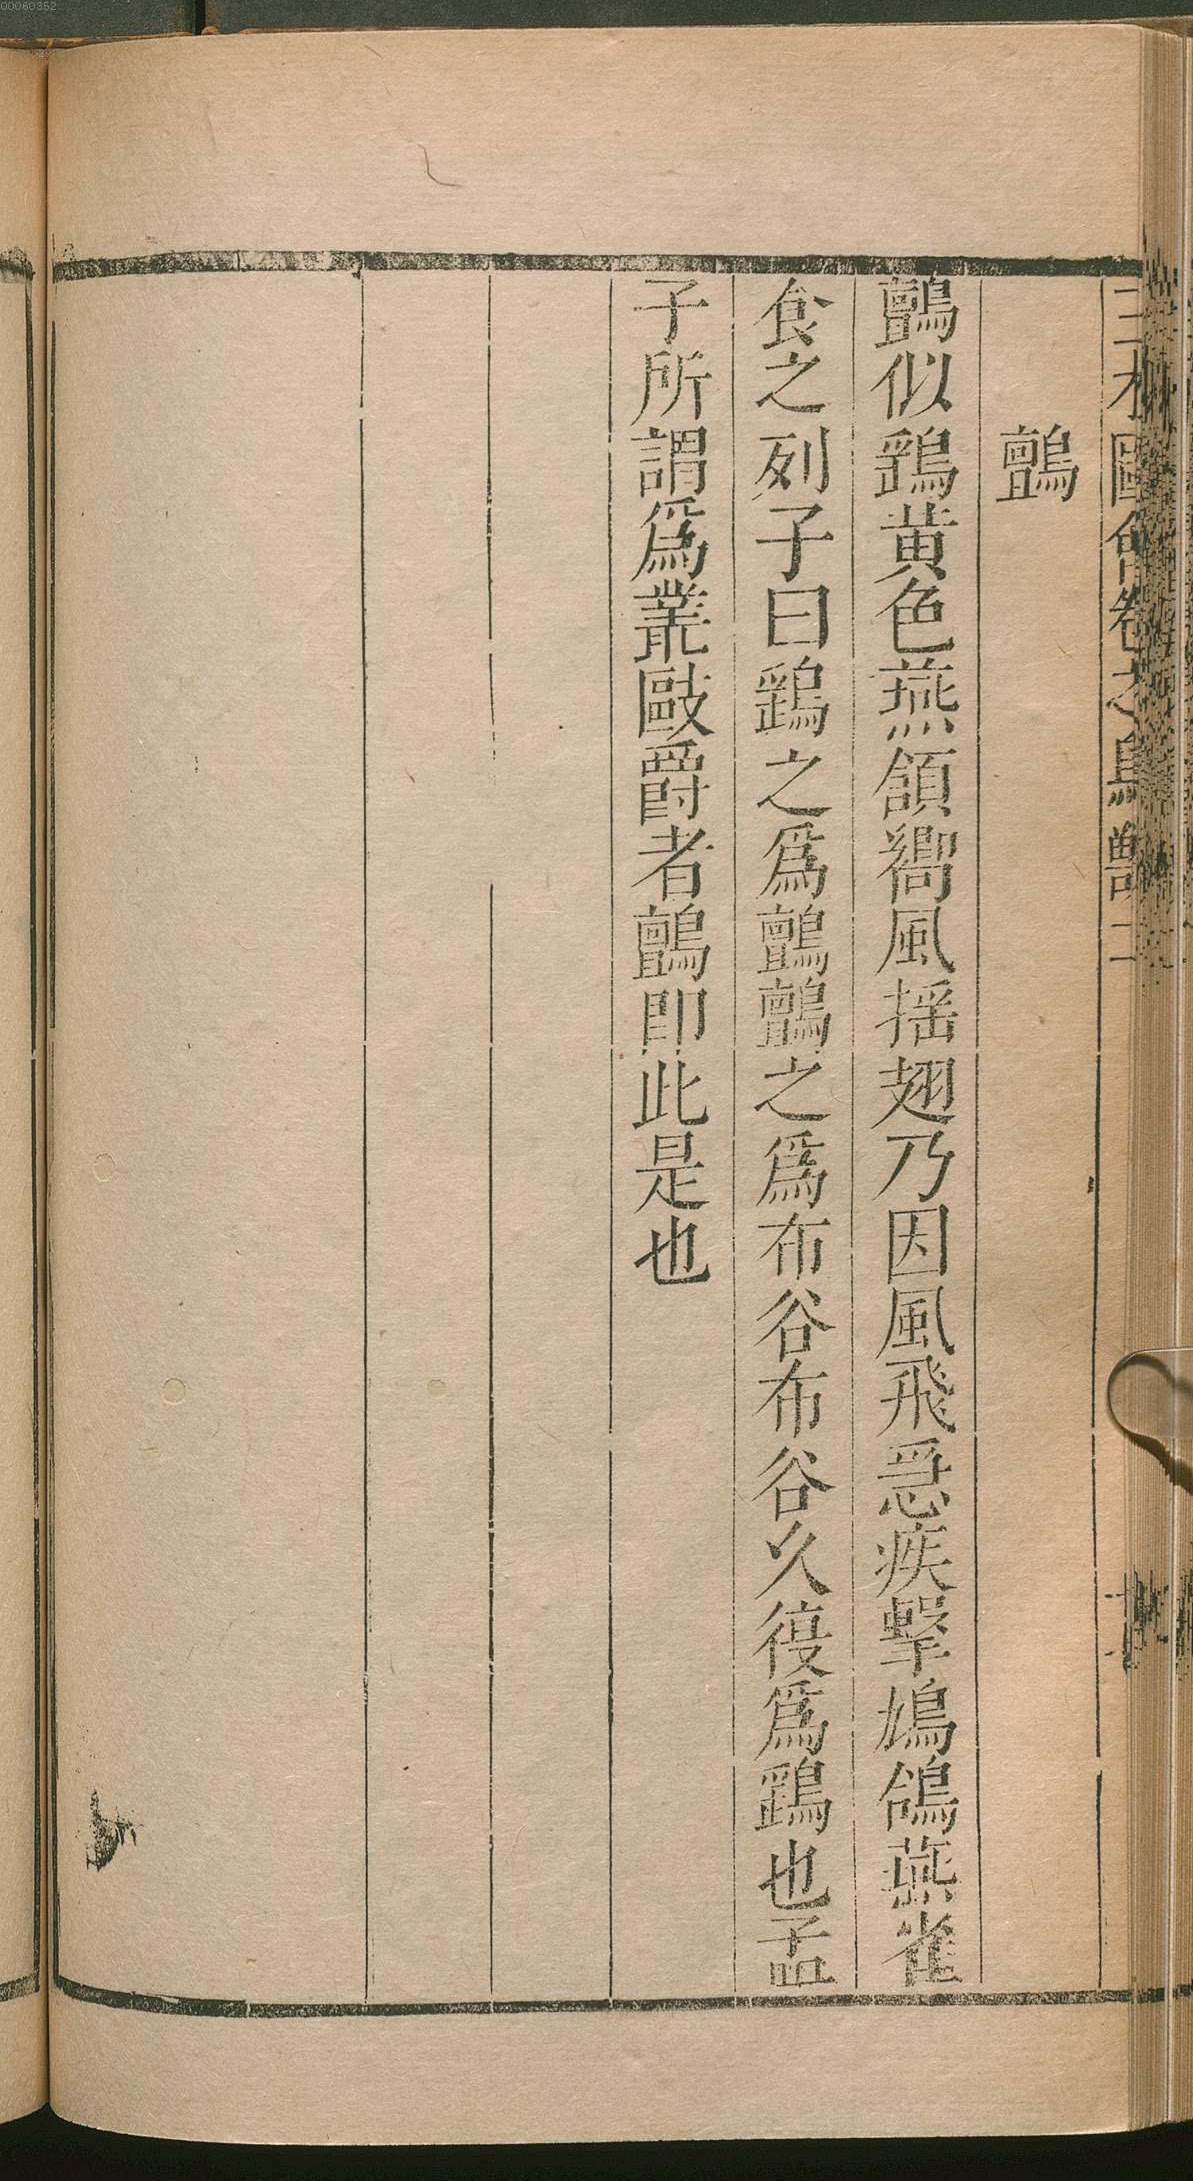 00060352
三才圖會卷之鳥獸二
鸇
鸇似鷂黃色燕頷嚮風揺翅乃因風飛急疾擊鳩鴿燕雀
食之列子曰鷂之爲鸇鸇之爲布谷布谷久復爲鷂也孟
子所謂爲叢敺爵者鸇即此是也